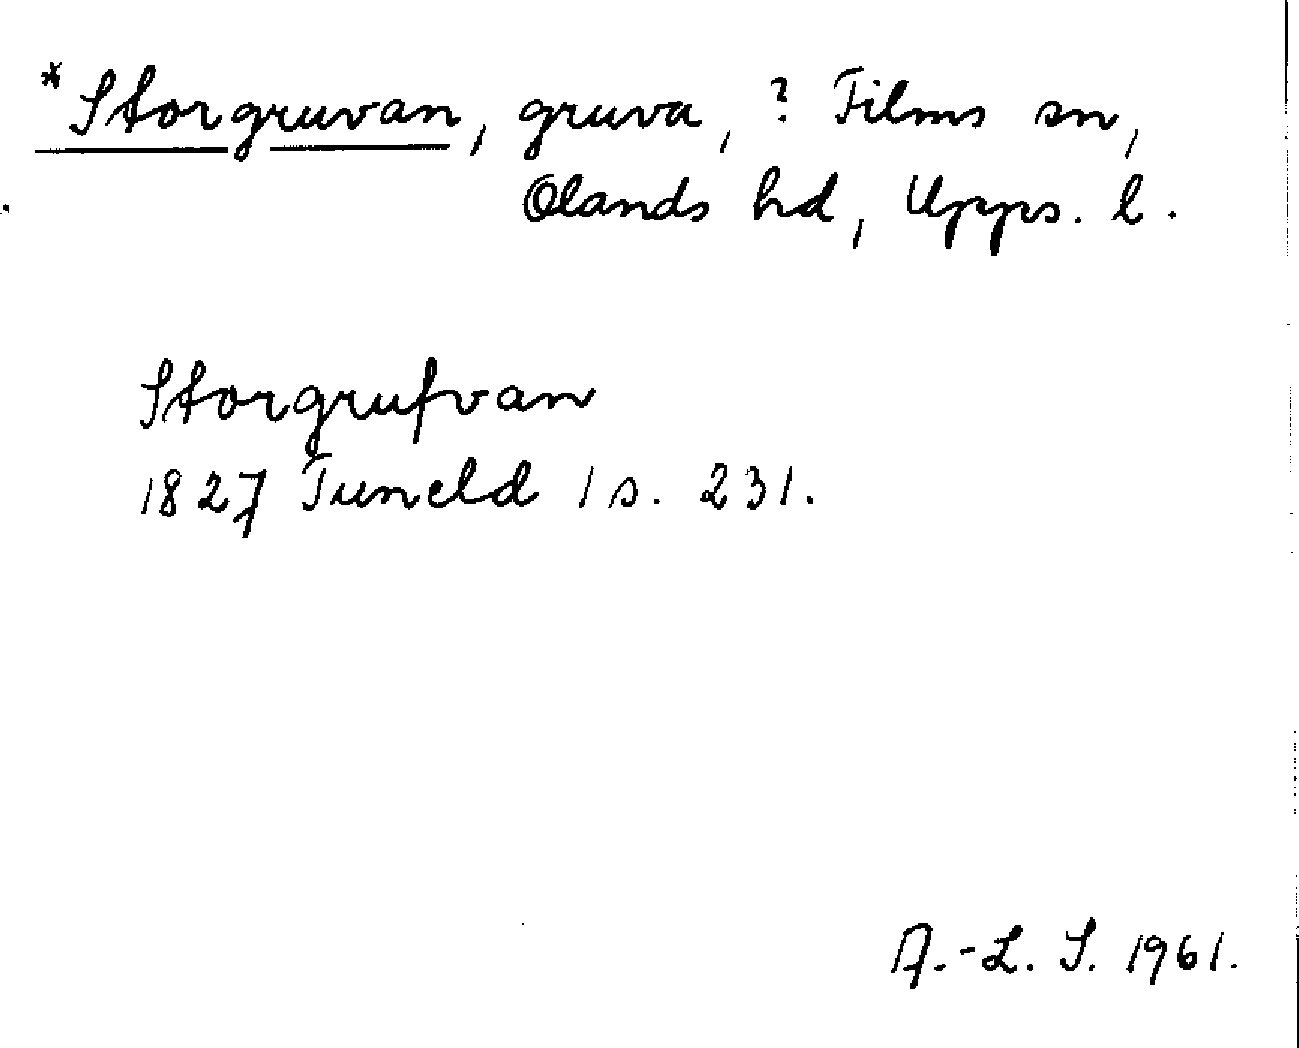 *Storgruvan, gruva, ? Films sn,
Olands hd, Upps. l.
Storgrufvan
1827 Tuneld 1 s. 231.
A.-L. S. 1961.